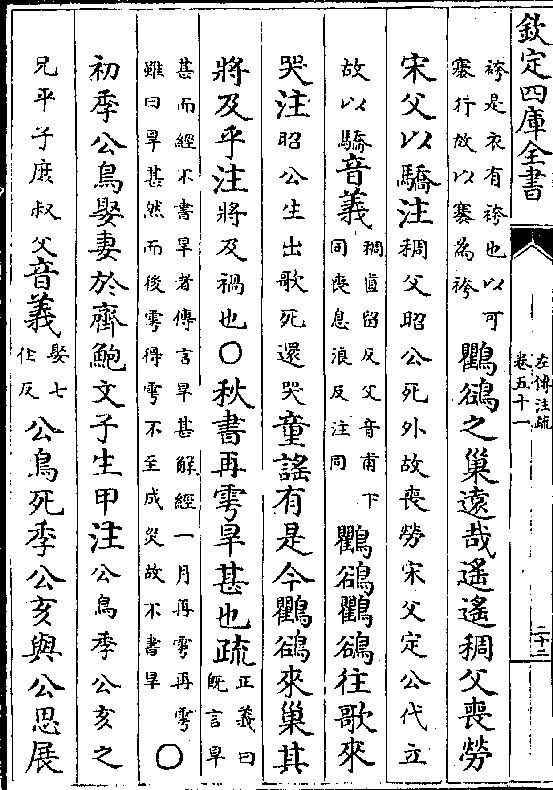 欽定四庫全書
左傳注疏
卷五十一
二十二
袴是衣有袴也以可
褰行故以褰為袴
鸜鵒之巢遠哉遥遥稠父喪勞
宋父以驕注稠父昭公死外故喪勞宋父定公代立
故以驕音義
稠直留反父音甫下
同喪息浪反注同
鸜鵒鸜鵒往歌來
哭注昭公生出歌死還哭童謡有是今鸜鵒來巢其
將及乎注將及禍也〇秋書再雩旱甚也疏
正義曰
既言旱
甚而經不書旱者傳言旱甚解經一月再雩再雩
雖曰旱甚然而後雩得雩不至成災故不書旱
〇
初季公鳥娶妻於齊鮑文子生甲注公鳥季公亥之
兄平子庶叔父音義
娶七
住反
公鳥死季公亥與公思展